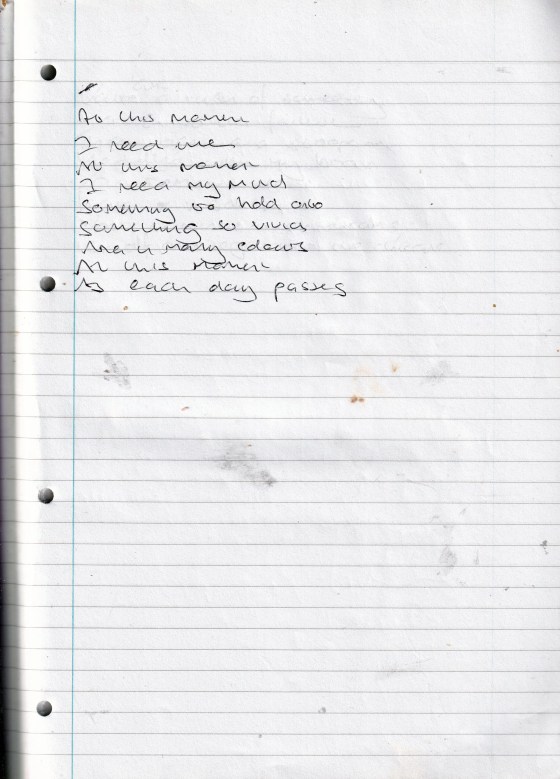 At this moment
I need me
At this moment
I need my mind
Something to hold onto
Something so vivid
And in many colours
At this moment
As each day passes